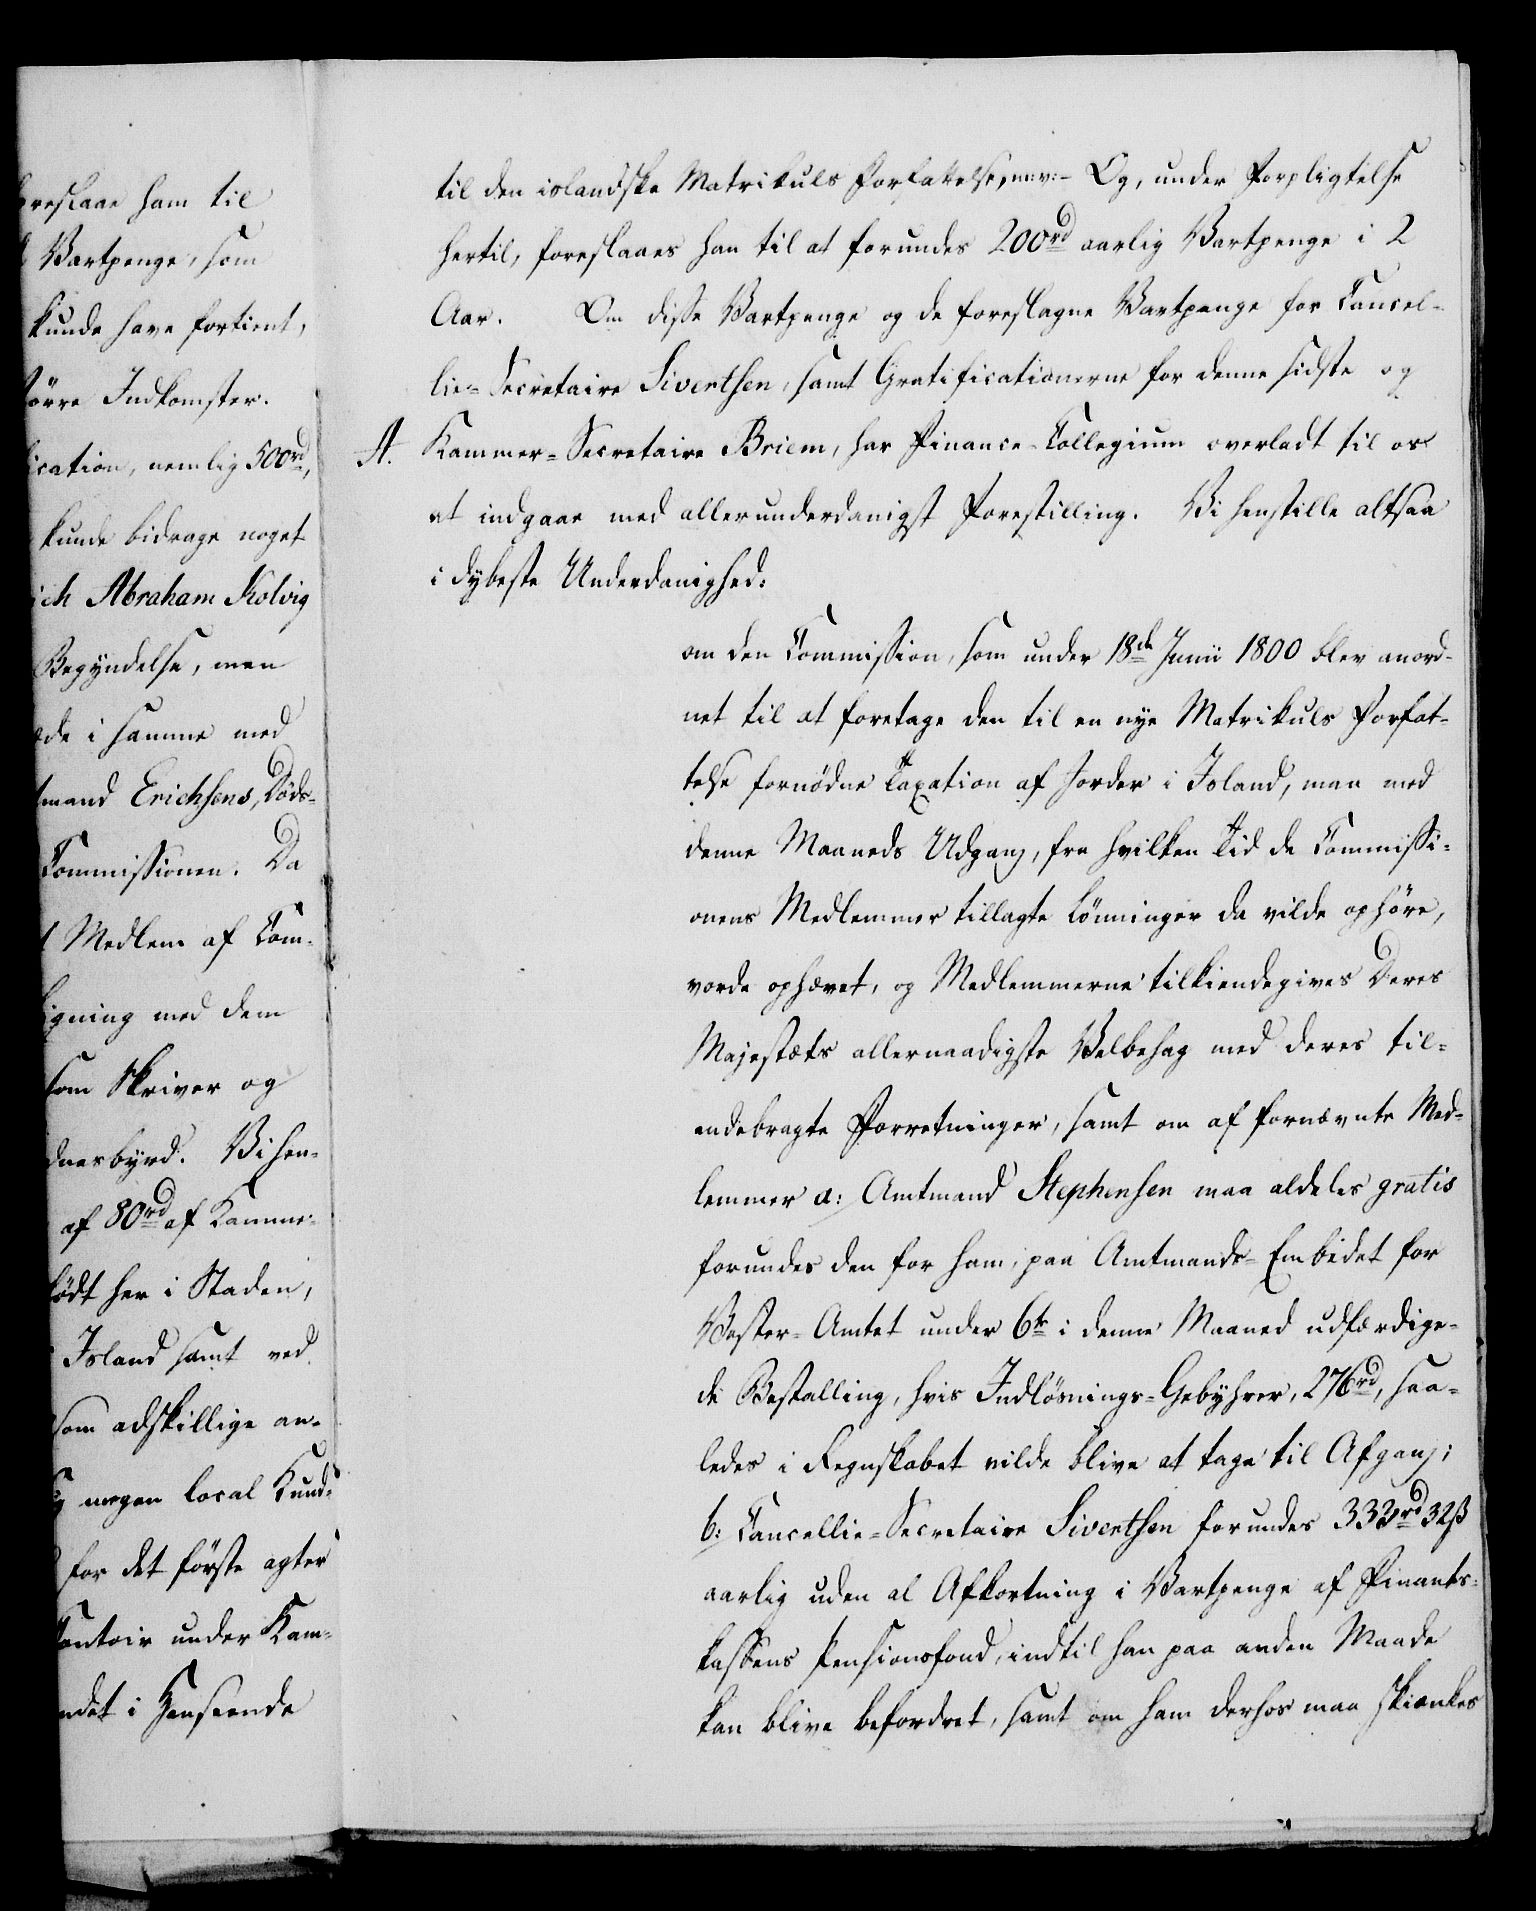 oreslaae ham til
Vartpenge, som
kunde have fortient,
större Indkomster.
ication, nemlig 500rd,
kunde bidrage noget
ich Abraham Kolvig
Begyndelse, men
æde i samme med
tmand Erichsens, Døds-
Commissionen. Da
Medlem af Com-
igning med dem
som Skriver og
dnesbyrd. Vi hen-
af 80rd af Kamme-
födt her i Staden,
Island samt ved
som adskillige an-
megen local Kund-
for det förste agter
Contoir under Kam-
ndet i Henseende
til den islandske Matrikuls Forfattelse, m:v:- Og, under Forpligtelse
hertil, foreslaaes han til at forundes 200rd aarlig Vartpenge i 2
Aar. Om disse Vartpenge og de foreslagne Vartpenge for Cancel-
lie-Secretaire Sivertsen, samt Gratificationerne for denne sidste og
A. Kammer-Secretaire Briem, har Finance-Collegium overladt til os
at indgaae med allerunderdanigst Forestilling. Vi henstille altsaa
i dybeste Underdanighed:
om den Commission, som under 18de Junii 1800 blev anord-
net til at foretage den til en nye Matrikuls Forfat-
telse fornödne Taxation af Jorder i Island, maa med
denne Maaneds Udgang, fra hvilken Tid de Commissi-
onens Medlemmer tillagte Lönninger da vilde ophöre,
vorde ophævet, og Medlemmerne tilkiendegives Deres
Majestæts allernaadigste Velbehag med deres til-
endebragte Forretninger, samt om af fornævnte Med-
lemmer a: Amtmand Stephensen maa aldeles gratis
forundes den for ham, paa Amtmands-Embedet for
Vester-Amtet under 6te i denne Maaned udfærdige-
de Bestalling, hvis Indlösnings-Gebyhrer, 276rd, saa-
ledes i Regnskabet vilde blive at tage til Afgang;
b: Cancellie-Secretaire Sivertsen forundes 333rd 32ß
aarlig uden al Afkortning i Vartpenge af Finants-
kassens Pensionsfond, indtil han paa anden Maade
kan blive befordret, samt om ham derhos maa skiænkes